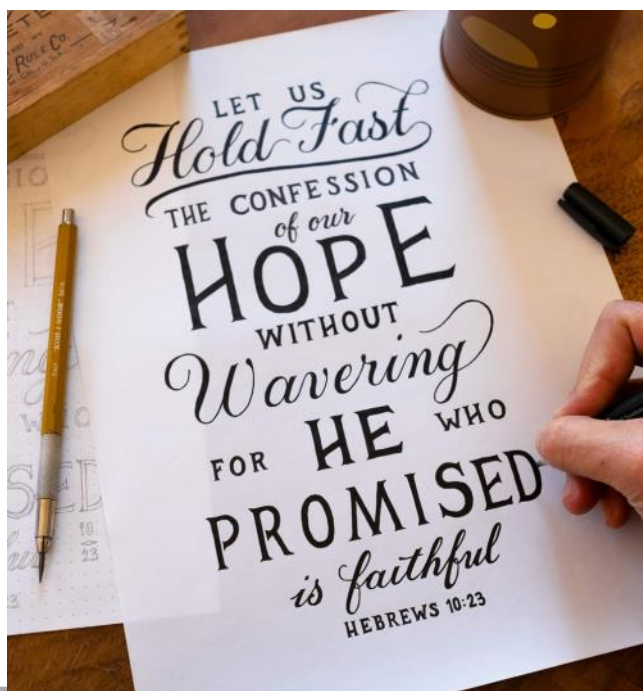 ETE
RULE CO.
LET US
Hold Fast
THE CONFESSION
of our
HOPE
WITHOUT
Wavering
FOR HE WHO
PROMISED
is faithful
HEBREWS 10:23
10
23